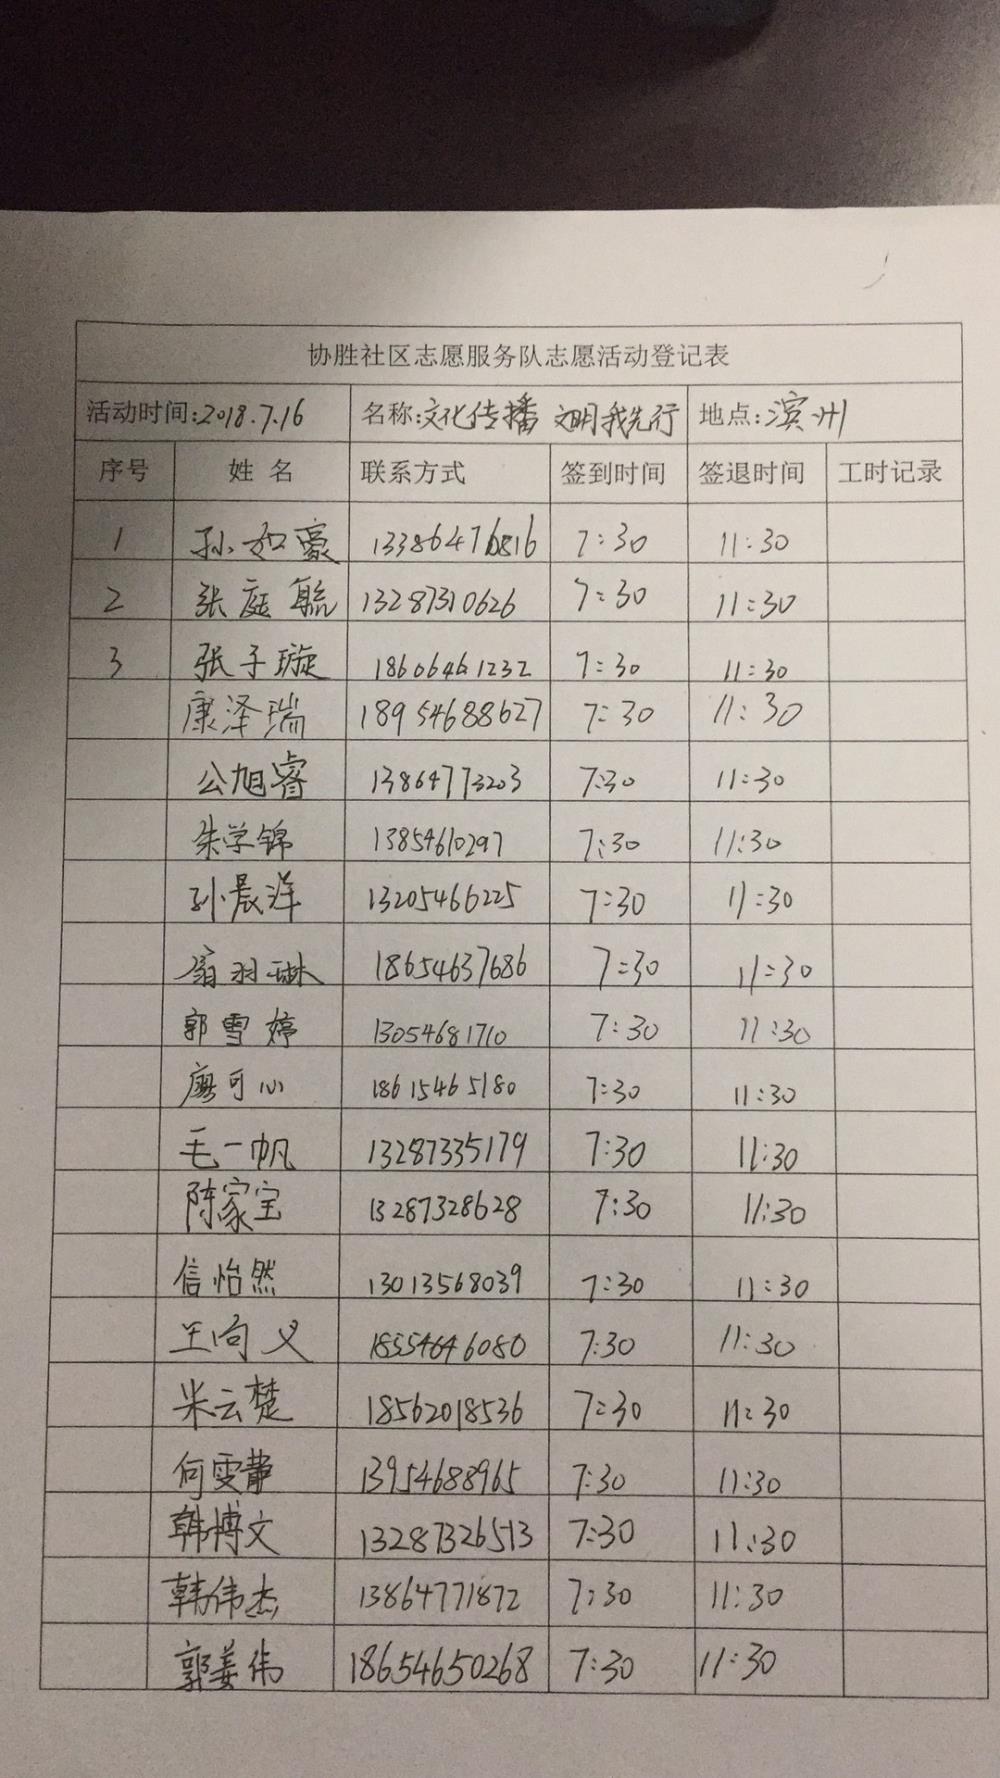 协胜社区志愿服务队志愿活动登记表
活动时间:2018.7.16 名称:文化传播 文明我先行 地点:滨州
序号 姓名 联系方式 签到时间 签退时间 工时记录
1 孙如豪 7:30 11:30
2 张庭毓 13287310626 7:30 11:30
3 张子璇 18606461232 7:30 11:30
康泽瑞 18954688627 7:30 11:30
公旭睿 13864773203 7:30 11:30
朱学锦 13854610297 7:30 11:30
孙晨洋 13205466225 7:30 11:30
羽琳 18654637686 7:30 11:30
郭雪婷 13054681710 7:30 11:30
廖可心 18615465180 7:30 11:30
毛一帆 13287335179 7:30 11:30
陈家宝 13287328628 7:30 11:30
信怡然 13013568039 7:30 11:30
王向义 18554646080 7:30 11:30
米云楚 18562018536 7:30 11:30
何雯静 13954688965 7:30 11:30
韩博文 13287326513 7:30 11:30
韩伟杰 13864771872 7:30 11:30
郭姜伟 18654650268 7:30 11:30